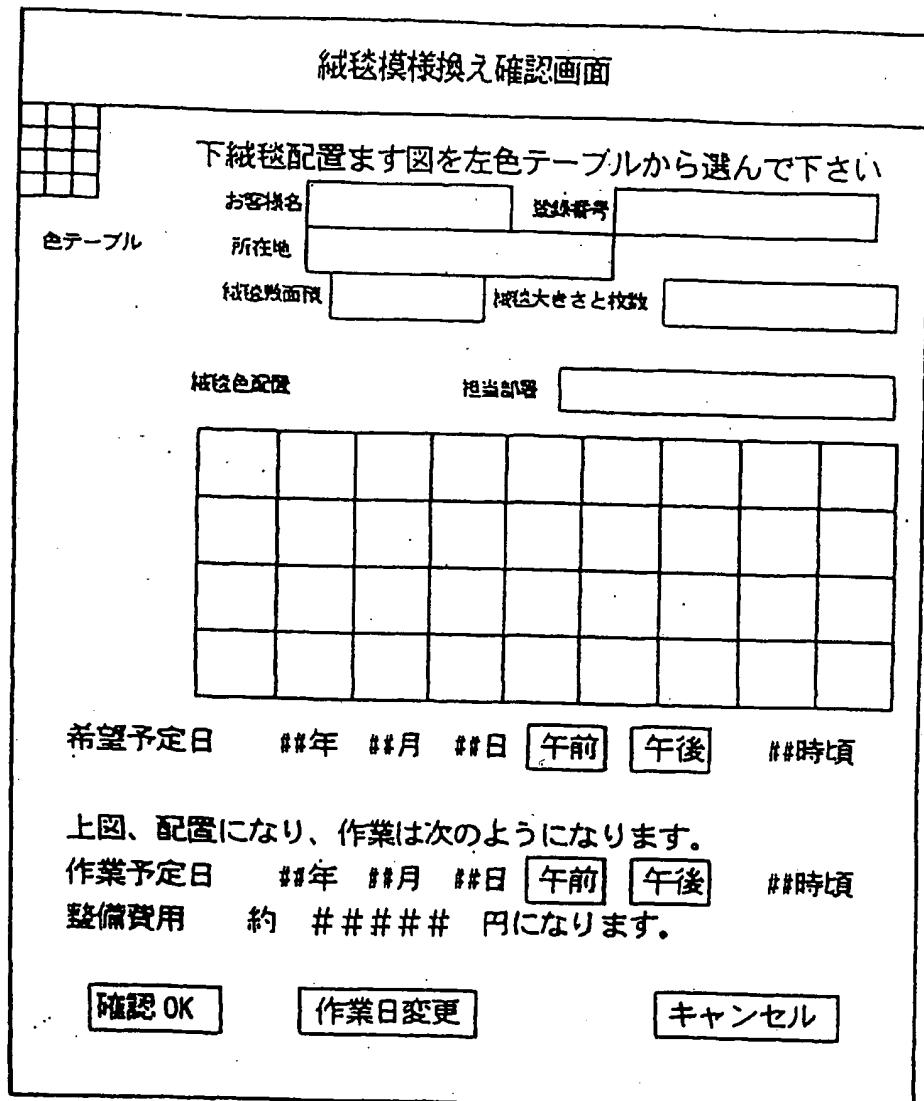 絨毯模様換え確認画面
下絨毯配置ます図を左色テーブルから選んで下さい
お客様名 登録番号
色テーブル 所在地
絨毯敷面積 絨毯大きさと枚数
絨毯色配置 担当部署
希望予定日 ##年 ##月 ##日 午前 午後 ##時頃
上図、配置になり、作業は次のようになります。
作業予定日 ##年 ##月 ##日 午前 午後 ##時頃
整備費用 約 ##### 円になります。
確認OK 作業日変更 キャンセル